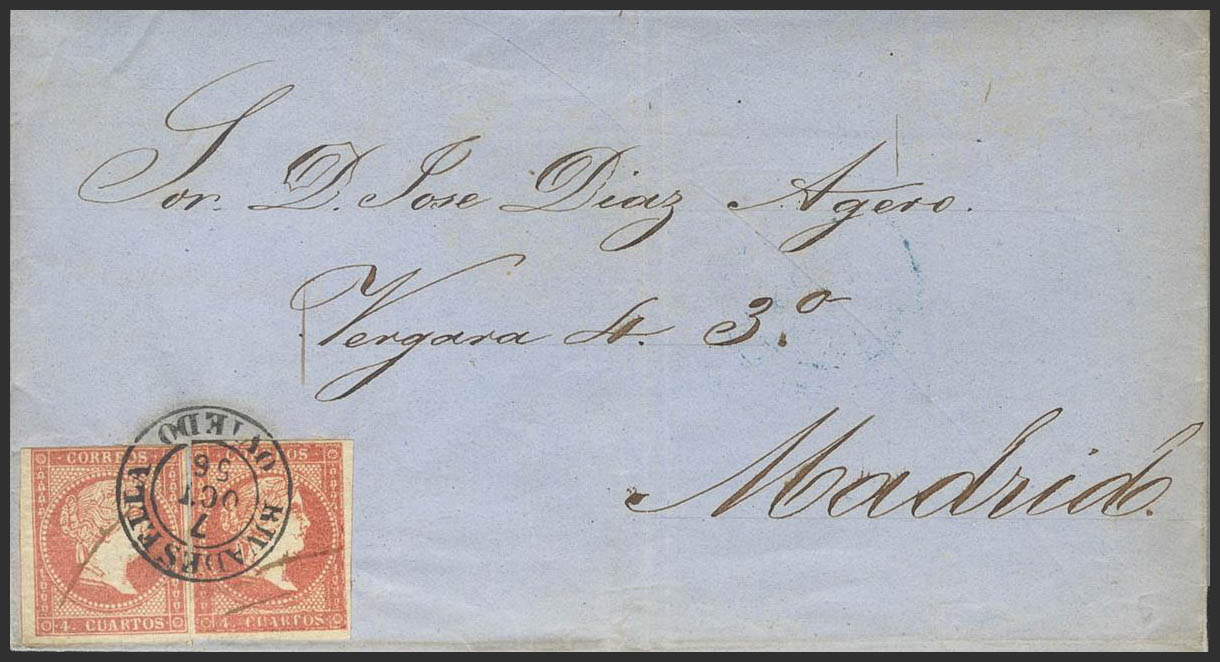 Sor. D. Jose Diaz Agero.
Vergara 4. 3.º
Madrid.
RIVADESELLA
7
OCT
56
OVIEDO
CORREOS
4. CUARTOS
4. CUARTOS